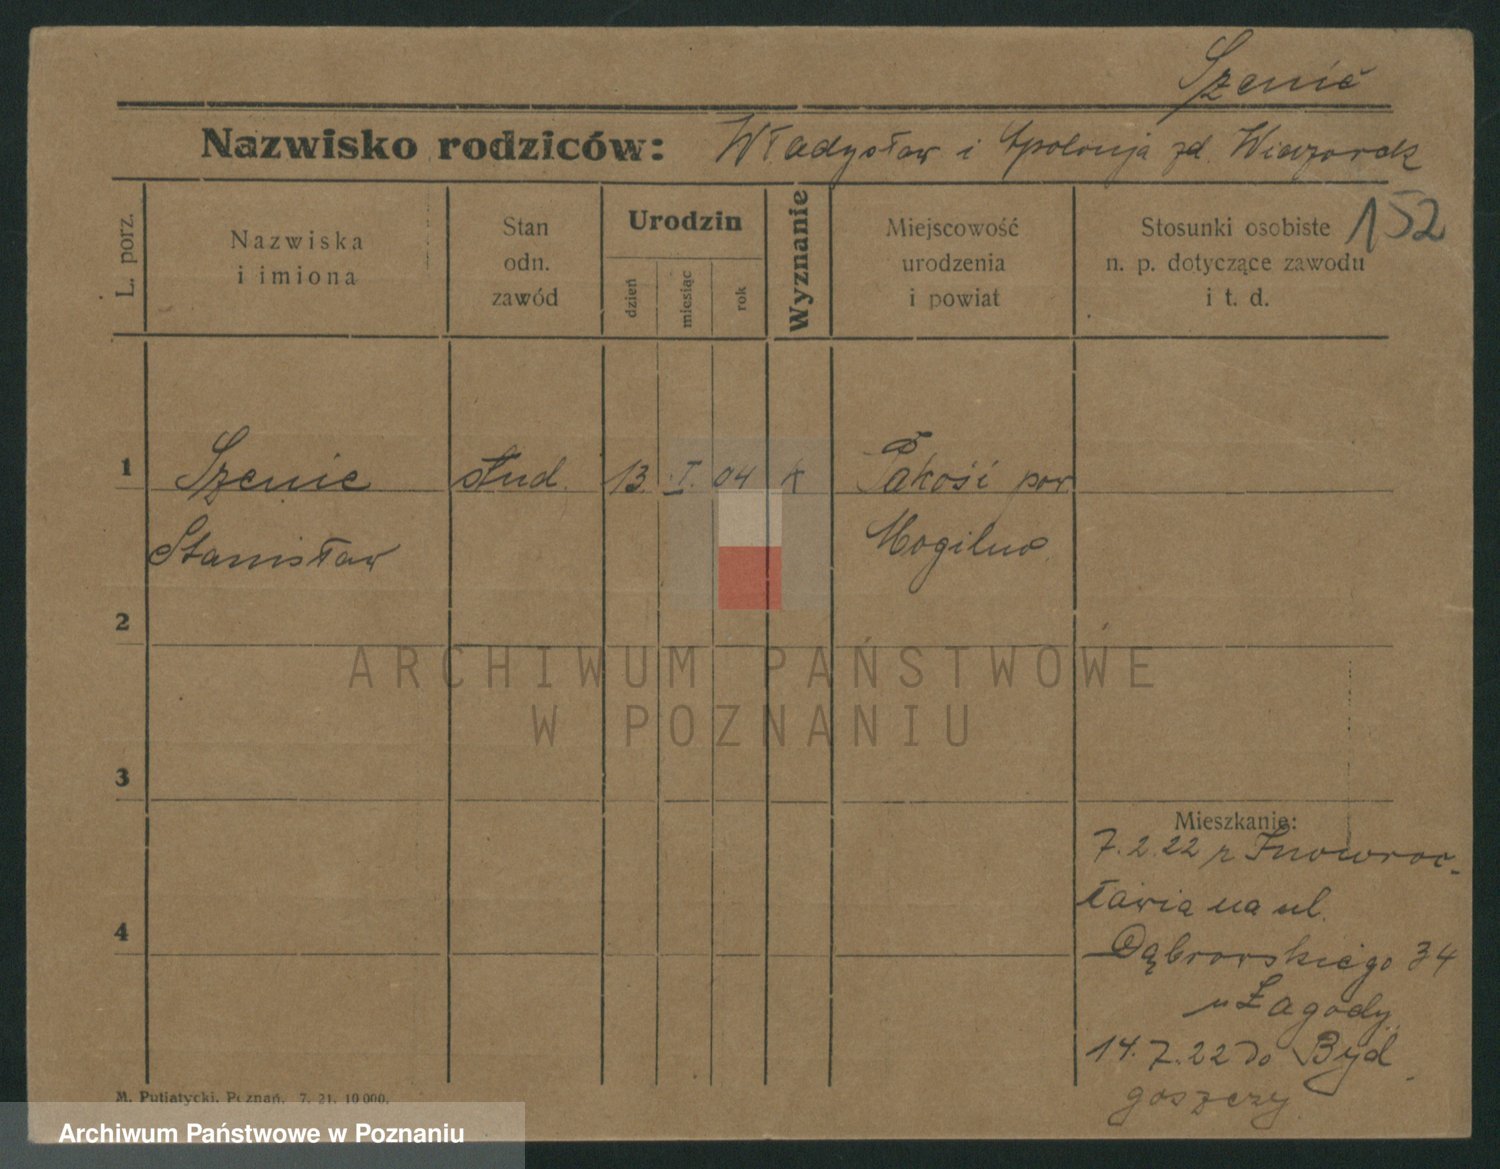 Szenic
Nazwisko rodziców: Władysław i Apolonja zd. Wieczorek
152
L. porz.
Nazwiska
i imiona
Stan
odn.
zawód
Urodzin
dzień
miesiąc
rok
Wyznanie
Miejscowość
urodzenia
i powiat
Stosunki osobiste
n. p. dotyczące zawodu
i t. d.
1 Szenic stud. 13 I. 04 k Pakość pow
Stanisław Mogilno
2
3
4
Mieszkanie:
7.2.22 z Inowroc-
ławia na ul.
Dąbrowskiego 34
u Łagody
14.7.22 do Byd
goszczy
M. Putiatycki, Poznań. 7. 21. 10 000.
ARCHIWUM PAŃSTWOWE
W POZNANIU
Archiwum Państwowe w Poznaniu